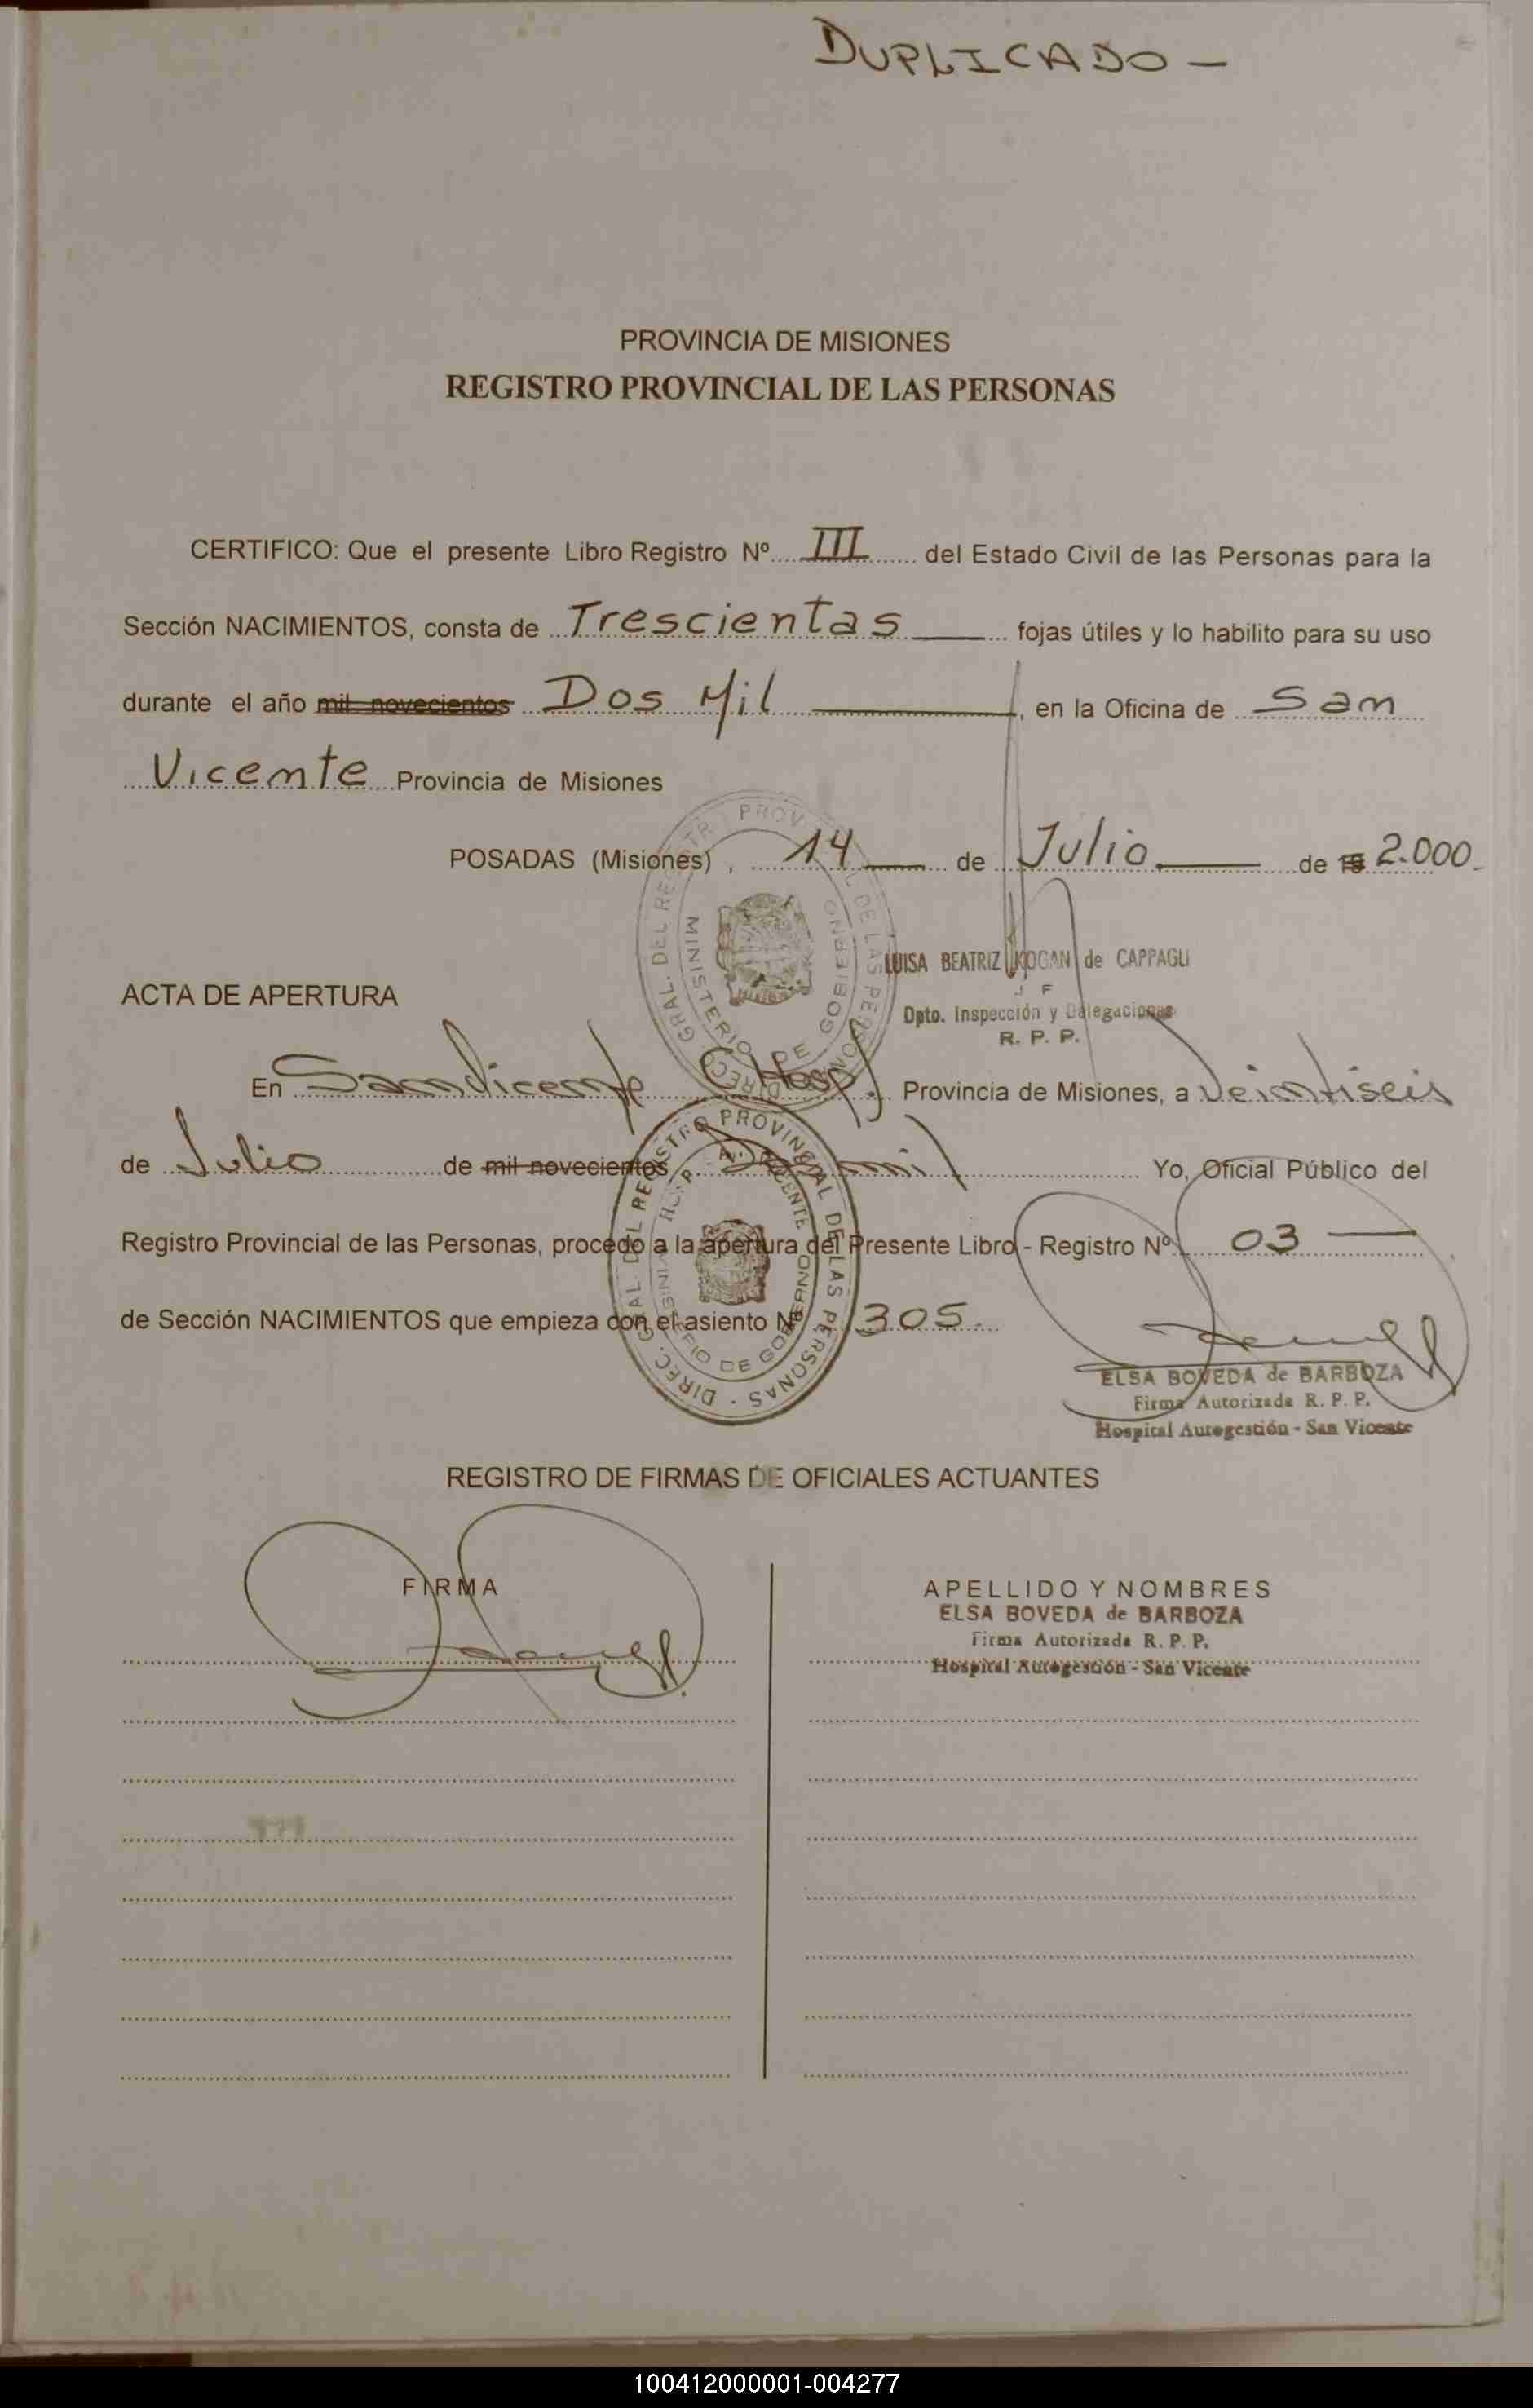 DUPLICADO -
PROVINCIA DE MISIONES
REGISTRO PROVINCIAL DE LAS PERSONAS
CERTIFICO: Que el presente Libro Registro Nº III del Estado Civil de las Personas para la
Sección NACIMIENTOS, consta de Trescientas fojas útiles y lo habilito para su uso
durante el año mil novecientos Dos Mil, en la Oficina de San
Vicente Provincia de Misiones
POSADAS (Misiones), 14 de Julio de 19 2.000
LUISA BEATRIZ KOGAN de CAPPAGLI
J F
Dpto. Inspección y Delegaciones
R. P. P.
ACTA DE APERTURA
En San Vicente (Hosp) Provincia de Misiones, a Veintiseis
de Julio de mil novecientos Dos mil Yo, Oficial Público del
Registro Provincial de las Personas, procedo a la apertura del Presente Libro - Registro Nº 03
de Sección NACIMIENTOS que empieza con el asiento Nº 305.
ELSA BOVEDA de BARBOZA
Firma Autorizada R. P. P.
Hospital Autogestión - San Vicente
REGISTRO DE FIRMAS DE OFICIALES ACTUANTES
FIRMA
APELLIDO Y NOMBRES
ELSA BOVEDA de BARBOZA
Firma Autorizada R. P. P.
Hospital Autogestión - San Vicente
100412000001-004277